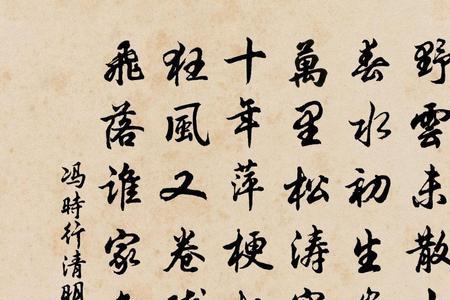 野雲未散
春水初生
萬里松涛
十年萍梗
狂風又卷
飛落誰家
冯時行清明